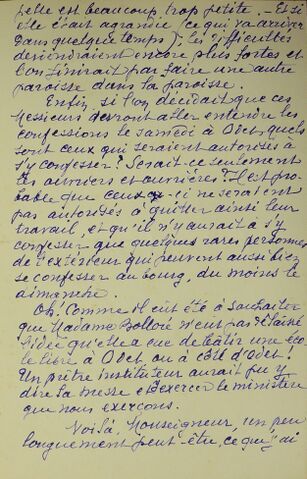 pelle est beaucoup trop petite. Et si
elle était agrandie (ce qui va arriver
dans quelque temps) les difficultés
deviendraient encore plus fortes et
l'on finirait par faire une autre
paroisse dans la paroisse.
Enfin, si l'on décidait que ces
Messieurs devront aller entendre les
confessions le samedi à Odet, quels
sont ceux qui seraient autorisés à
s'y confesser? Serait-ce seulement
les ouvriers et ouvrières? Il est pro-
bable que ceux-ci ne seraient
pas autorisés à quitter ainsi leur
travail, et qu'il n'y aurait à s'y
confesser que quelques rares personnes
de l'extérieur qui peuvent aussi bien
se confesser au bourg, du moins le
dimanche.
Oh! Comme il eût été à souhaiter
que Madame Bolloré n'eut pas
l'idée qu'elle a eue de bâtir une éco-
le libre à Odet, ou à côté d'Odet!
Un prêtre instituteur aurait pu y
dire la messe et exercer le ministère
que nous exerçons.
Voilà, Monseigneur, un peu
longuement peut-être, ce que j'ai